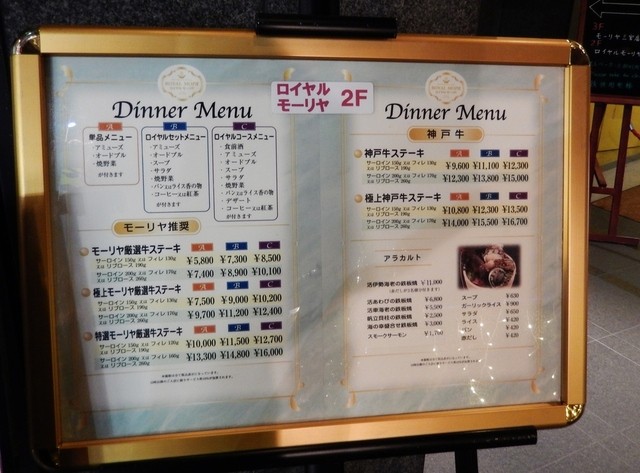 ロイヤル
モーリヤ 2F
Dinner Menu
A
単品メニュー
・アミューズ
・オードブル
・焼野菜
が付きます
B
ロイヤルセットメニュー
・アミューズ
・オードブル
・スープ
・サラダ
・焼野菜
・パン又はライス香の物
・コーヒー又は紅茶
が付きます
C
ロイヤルコースメニュー
・食前酒
・アミューズ
・オードブル
・スープ
・サラダ
・焼野菜
・パン又はライス香の物
・デザート
・コーヒー又は紅茶
が付きます
モーリヤ推奨
モーリヤ厳選牛ステーキ A B C
サーロイン 150g 又は フィレ 130g
又は リブロース 190g
¥5,800 ¥7,300 ¥8,500
サーロイン 200g 又は フィレ 170g
又は リブロース 260g
¥7,400 ¥8,900 ¥10,100
極上モーリヤ厳選牛ステーキ A B C
サーロイン 150g 又は フィレ 130g
又は リブロース 190g
¥7,500 ¥9,000 ¥10,200
サーロイン 200g 又は フィレ 170g
又は リブロース 260g
¥9,700 ¥11,200 ¥12,400
特選モーリヤ厳選牛ステーキ A B C
サーロイン 150g 又は フィレ 120g
又は リブロース 190g
¥10,000 ¥11,500 ¥12,700
サーロイン 200g 又は フィレ 160g
又は リブロース 260g
¥13,300 ¥14,800 ¥16,000
Dinner Menu
神戸牛
神戸牛ステーキ A B C
サーロイン 150g 又は フィレ 130g
¥9,600 ¥11,100 ¥12,300
サーロイン 200g 又は フィレ 170g
¥12,300 ¥13,800 ¥15,000
極上神戸牛ステーキ A B C
サーロイン 150g 又は フィレ 130g
¥10,800 ¥12,300 ¥13,500
サーロイン 200g 又は フィレ 170g
¥14,000 ¥15,500 ¥16,700
アラカルト
活伊勢海老の鉄板焼 ¥11,000
活あわびの鉄板焼
活車海老の鉄板焼
帆立貝柱の鉄板焼
海の幸盛合せ鉄板焼
スモークサーモン
スープ
ガーリックライス
サラダ
ライス
パン